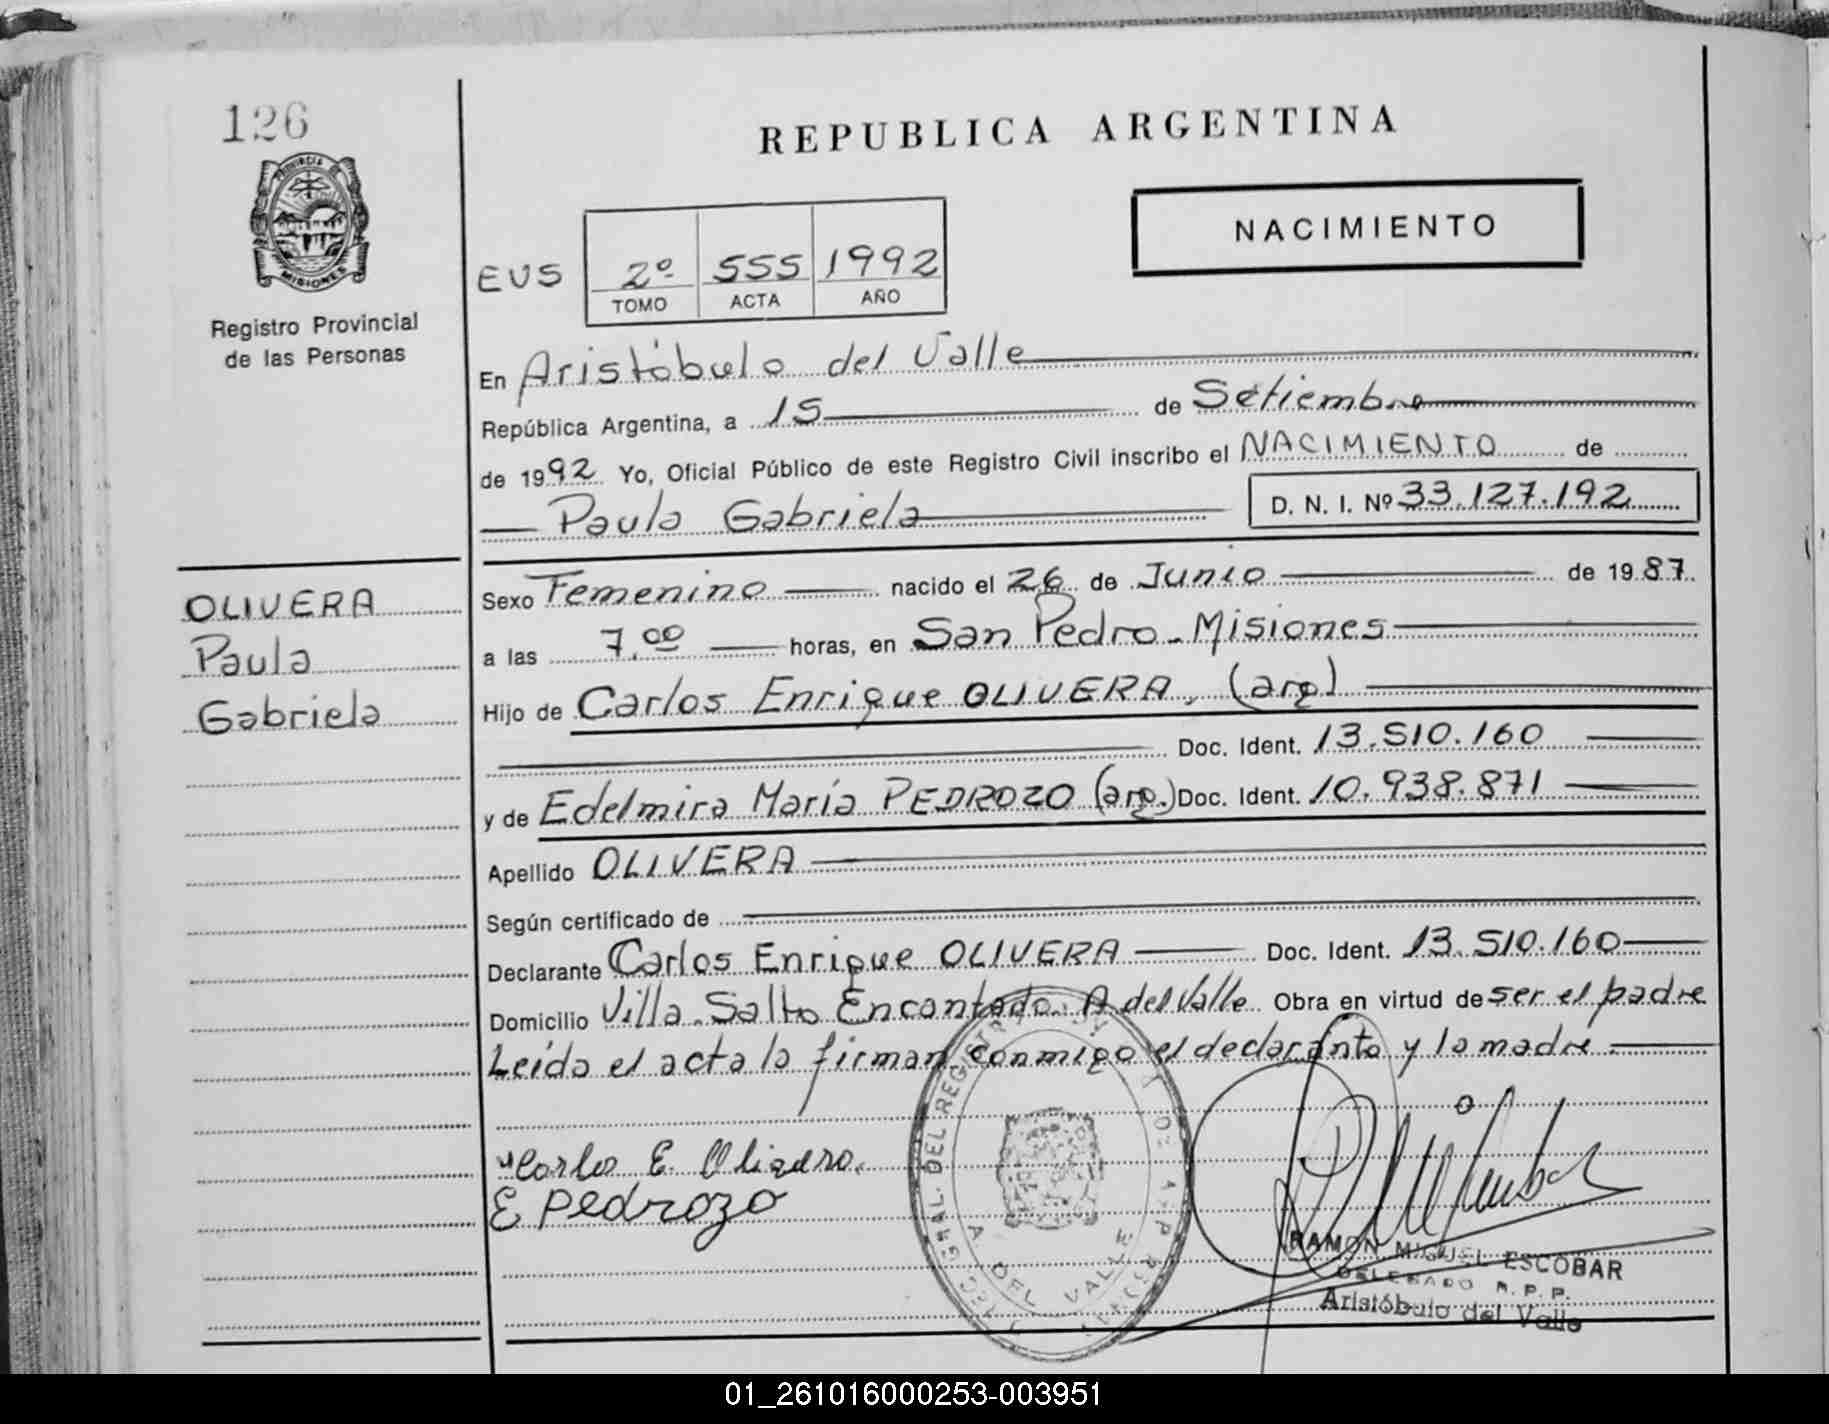 126
PROVINCIA DE
MISIONES
Registro Provincial
de las Personas
REPUBLICA ARGENTINA
NACIMIENTO
EUS 2º 555 1992
TOMO ACTA AÑO
En Aristóbulo del Valle
República Argentina, a 15 de Setiembre
de 1992 Yo, Oficial Público de este Registro Civil inscribo el NACIMIENTO de
Paula Gabriela D. N. I. Nº 33.127.192
OLIVERA
Paula
Gabriela
Sexo Femenino nacido el 26 de Junio de 1987.
a las 7,00 horas, en San Pedro - Misiones
Hijo de Carlos Enrique OLIVERA, (arg)
Doc. Ident. 13.510.160
y de Edelmira María PEDROZO (arg.) Doc. Ident. 10.938.871
Apellido OLIVERA
Según certificado de
Declarante Carlos Enrique OLIVERA Doc. Ident. 13.510.160
Domicilio Villa Salto Encantado. A. del Valle Obra en virtud de ser el padre
Leída el acta la firman conmigo el declarante y la madre.
Carlos E. Olivera.
E Pedrozo
A DEL VALLE
RAMON MIGUEL ESCOBAR
DELEGADO R. P. P.
Aristóbulo del Valle
01_261016000253-003951